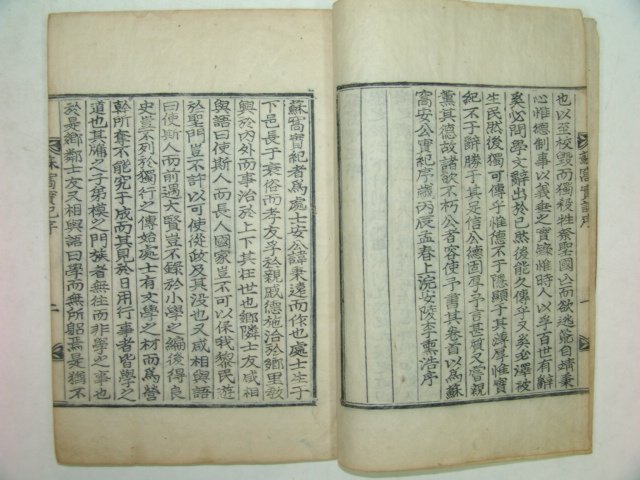 也以至校毁而獨殺牲祭聖國公而欲逃兖自靖秉
心惟德制事以義垂之實蹟惟時人以孚百世有辭
奚必問學文辭出於己然後能久傳乎又奚必澤被
生民然後獨可傳乎惟德不于隱顯于其薄厚惟實
紀不于辭勝于其是信公德固厚予言甚質又嘗親
薰其德故諸欲不朽公者容使予書其卷首以爲蘇
窩安公實紀序歲丙辰孟春上浣安陵李熏浩序
蘇窩實紀者爲處士安公諱秉達而作也處士生于
下邑長于衰俗而孝友孚於親戚德施洽於鄉里敎
興於內外而事治於上下其在世也鄕隣士友咸相
與語曰使斯人而長人國家豈不可以保我黎民遊
於聖門豈不許以可使從政及其没也又咸相與語
曰使斯人而前遇大賢豈不錄於小學之編後得良
史豈不列於獨行之傳始處士有文學之材而爲營
幹所奪不能究于成而其見於日用行事者皆學之
道也其牖之子弟模之門族者無往而非學之事也
於是鄕鄰士友又相與語曰學而無所躬焉是猶不
蘇窩實紀序
一